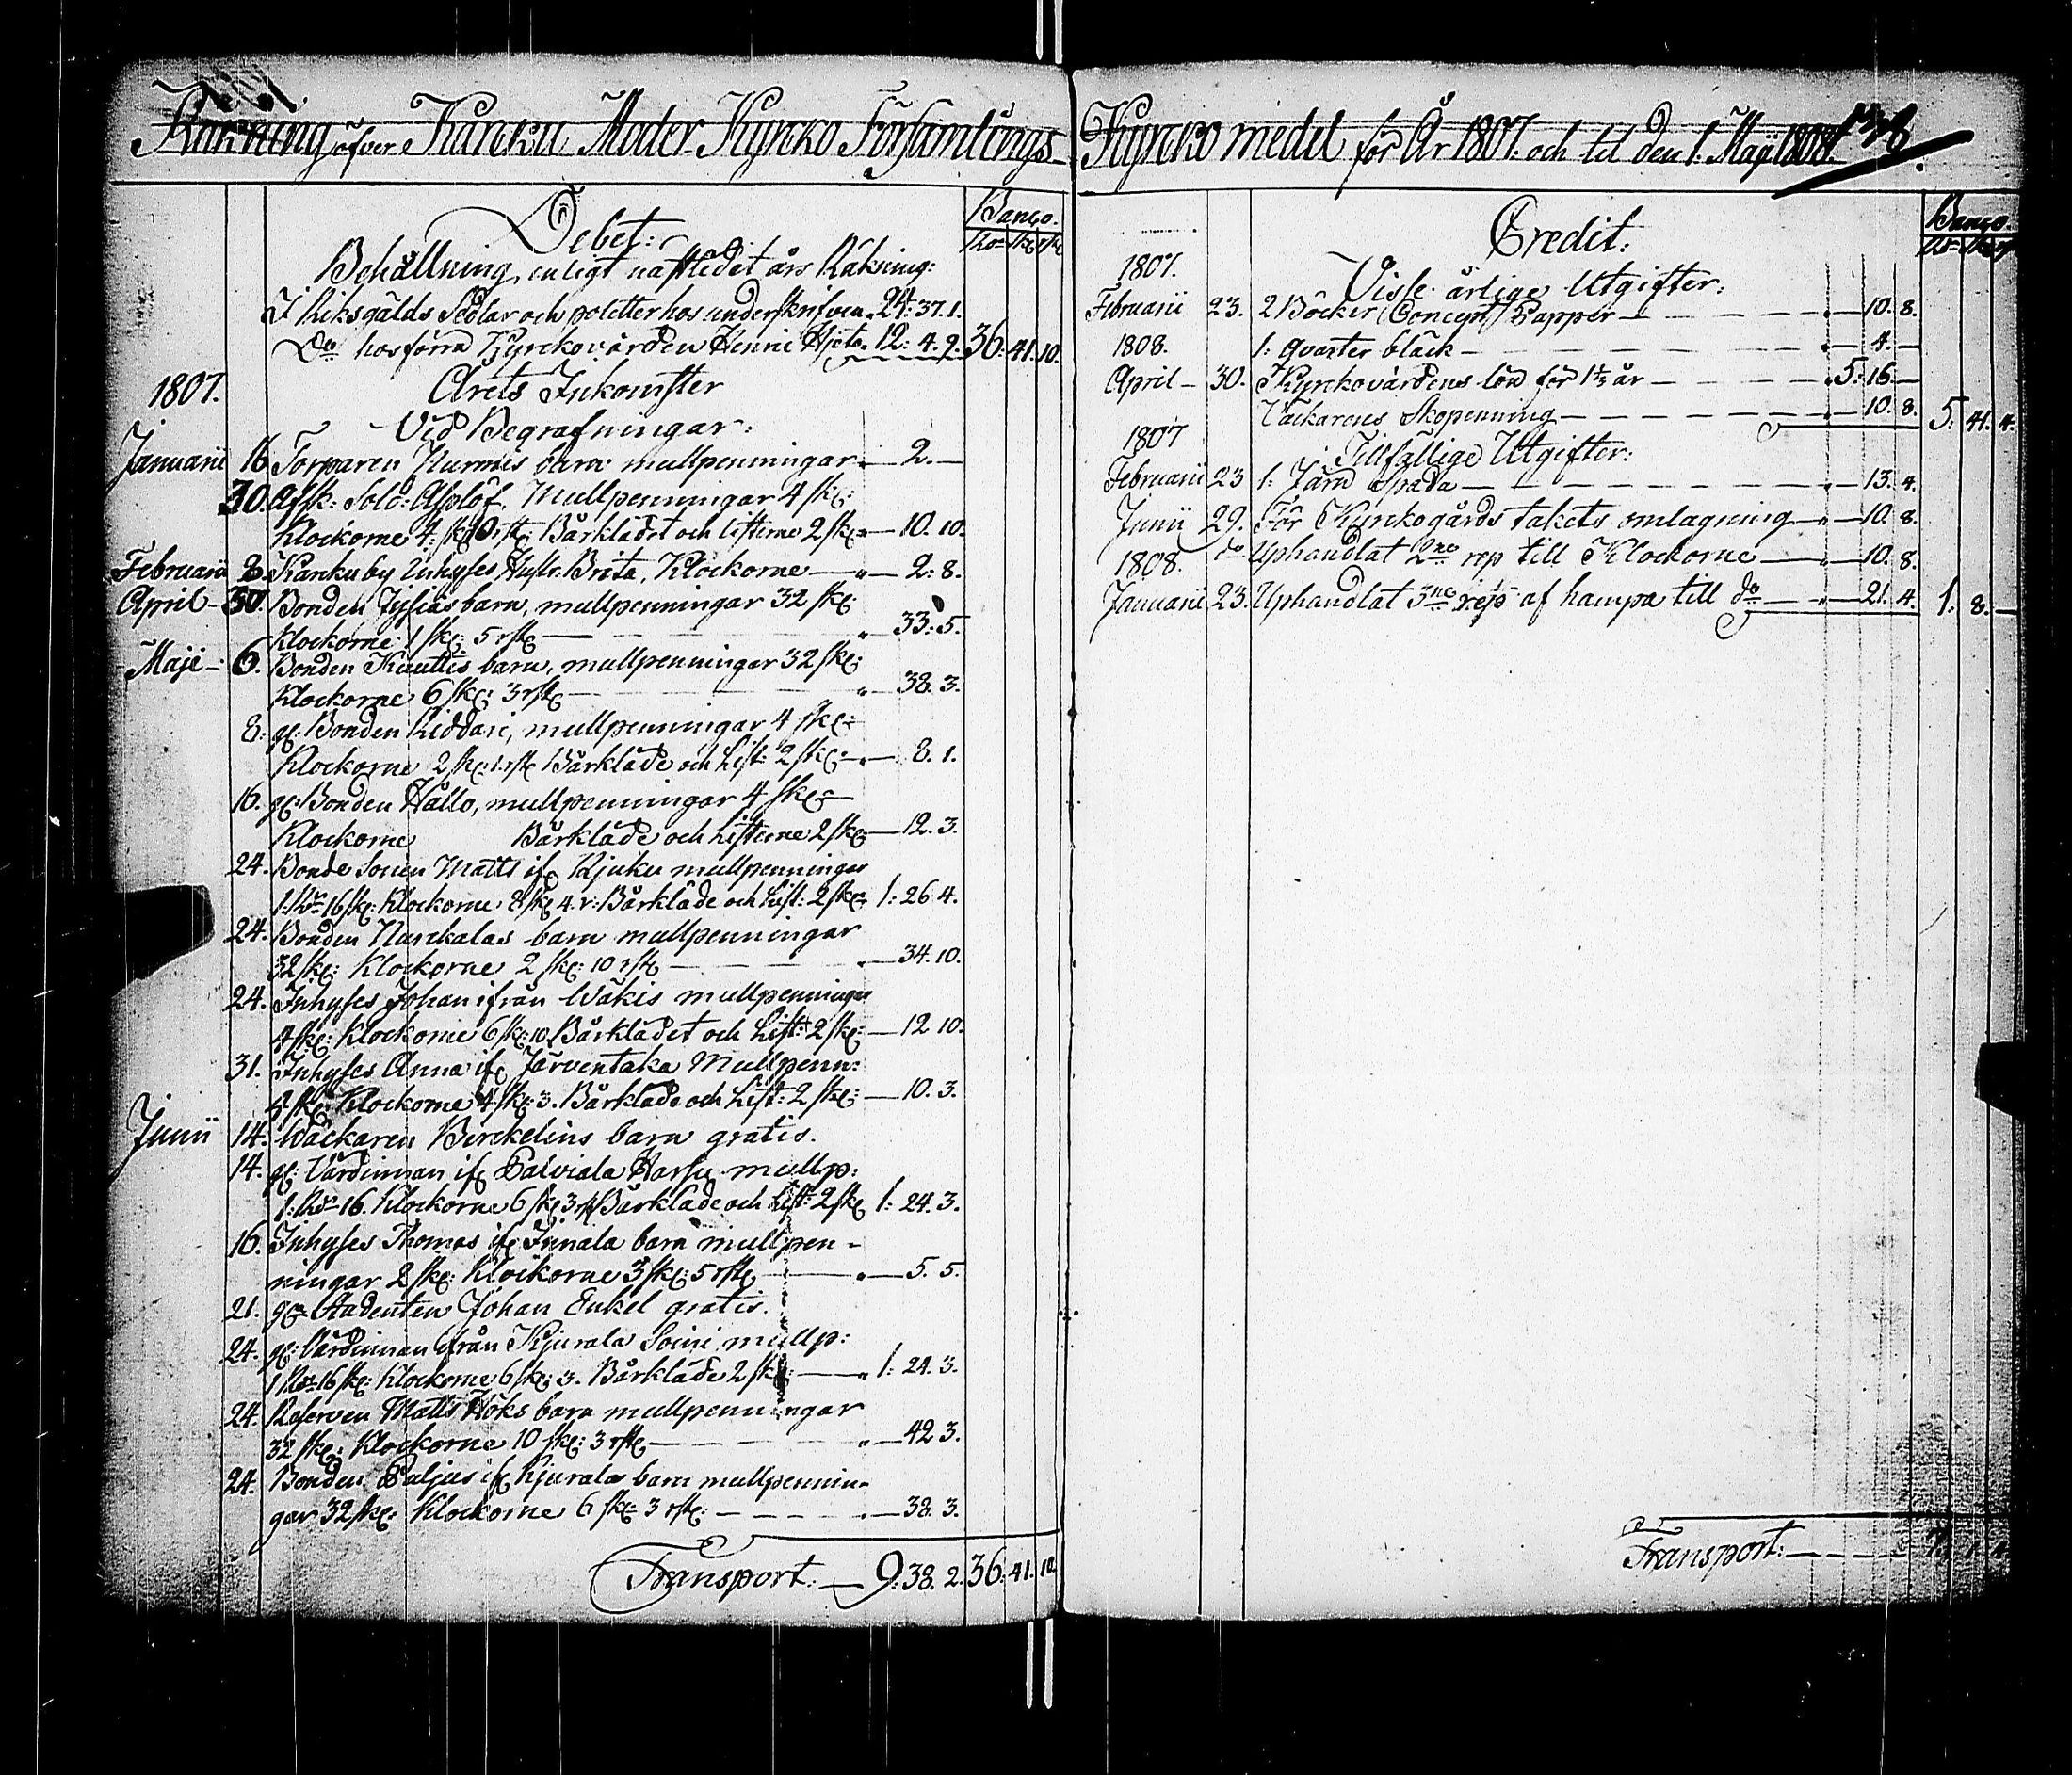 Räkning öfver Karcku Moder Kyrcko Församlings-
Debet:
Banco.
Rdr skg rst
Behållning enligt nästledet års Räkning:
I Riksgälds Sedlar och poletter hos underskrifven 24: 37. 1.
Do hos förra Kyrckovärden Henric Hjeto. 12: 4. 9. 36: 41. 10.
1807. Årets Inkomster
Vid Begrafningar:
Januarii 16. Torparen Nurmis barn mullpenningar " — 2. —
30. Afsk: Sold: Asplöf, Mullpenningar 4 skg:
Klockorne 4 skg 10 rst. Bårklädet och listerne 2 skg — 10. 10.
Februarii 8. Karcku by Inhyses Hustr. Brita, Klockorne — " — 2: 8.
April — 30. Bonden Jysias barn, mullpenningar 32 skg:
Klockorne 1 skg: 5 rst — " — 33: 5.
Maji — 6. Bonden Kauttis barn, mullpenningar 32 skg:
Klockorne 6 skg: 3 rst — " — 38. 3.
8. gl: Bonden Riddari, mullpenningar 4 skg:
Klockorne 2 skg: 1 rst Bårkläde och List: 2 skg: — " — 8. 1.
16. gl: Bonden Hållo, mullpenningar 4 skg:
Klockorne Bårkläde och Listerne 2 skg — 12. 3.
24. Bonde Sonen Matts if. Kjuku mullpenningar
1 Rdr 16 skg: Klockorne 8 skg 4 r: Bårkläde och List: 2 skg: 1: 26. 4.
24. Bonden Nurckalas barn mullpenningar
32 skg: Klockorne 2 skg: 10 rst — " — 34. 10.
24. Inhyses Johan ifrån Wäkis mullpenningar
4 skg: Klockorne 6 skg: 10. Bårklädet och List: 2 skg: — 12. 10.
31. Inhyses Anna if. Järventaka Mullpenn:
4 skg: Klockorne 4 skg: 3. Bårkläde och List: 2 skg: — 10. 3.
Junii 14. Wäckaren Berckelins barn gratis.
14. gl: Värdinnan if. Palviala Harsu mullp:
1: Rdr 16. Klockorne 6 skg 3 r Bårkläde och List: 2 skg 1: 24. 3.
16. Inhyses Thomas if. Innala barn mullpen-
ningar 2 skg: Klockorne 3 skg: 5 rst — " — 5. 5.
21. gl: Studenten Johan Enkel gratis.
24. gl: Värdinnan ifrån Kjurala Soini mullp:
1 Rdr 16 skg: Klockorne 6 skg: 3. Bårkläde 2 skg: — " 1: 24. 3.
24. Reserven Matts Höks barn mullpenningar
32 skg: Klockorne 10 skg: 3 rst — " — 42. 3.
24. Bonden Paljus if. Kjurala barn mullpennin-
gar 32 skg: Klockorne 6 skg 3 rst: — " — 38. 3.
Transport: — 9: 38. 2. 36: 41. 10.
Kyrcko medel för År 1807. och til den 1. Maji 1808.
Credit:
Banco.
1807. Visse årlige Utgifter:
Februarii 23. 2 Böcker Concept Papper — " — 10. 8.
1808. 1: qvarter bläck — " — 4. —
April — 30. Kyrckovärdens lön för 1 1/3 år — 5: 16. —
Väckarens Skopenning — " — 10. 8. 5: 41. 4.
1807 Tillfällige Utgifter:
Februarii 23 1: Järn Spada — " — 13. 4.
Junii 29. För Kyrckogårds takets omlagning — " — 10. 8.
1808. do Uphandlat 2ne rep till Klockorne — " — 10. 8.
Januarii 23. Uphandlat 3ne reps af hampa till do — " — 21. 4. 1: 8. —
Transport: —